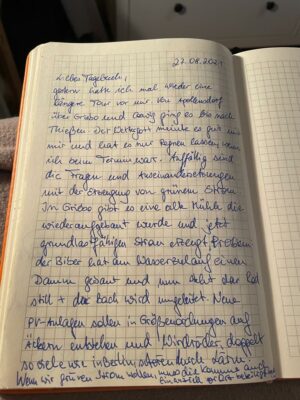 22.08.2021
Liebes Tagebuch,
gestern hatte ich mal wieder eine
längere Tour vor mir von Apollensdorf
über Griebo und Coswig ging es bis nach
Thießen. Der Wettergott meinte es gut mit
mir und hat es nur regnen lassen wenn
ich beim Termin war. Auffällig sind
die Fragen und Auseinandersetzungen
mit der Erzeugung von grünem Strom
In Griebo gibt es eine alte Mühle die
wiederaufgebaut wurde und jetzt
grundlastfähigen Strom erzeugt Problem
der Biber hat am Wasserzulauf einen
Damm gebaut und nun steht das Rad
still + der Bach wird umgeleitet. Neue
PV-Anlagen sollen in Größenordnungen auf
Äckern entstehen und Windräder, doppelt
so viele wie in Berlin, stören durch Lärm.
Wenn wir grünen Strom wollen, muss die Kommune auch